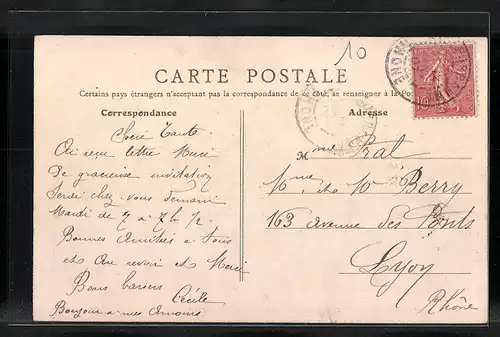 10
CARTE POSTALE
Certains pays étrangers n'acceptant pas la correspondance de ce côté, se renseigner à la Po
Correspondance
Adresse
Chère Tante
Ai reçu lettre Merci
De gracieuse invitation
Serai chez vous demain
Mardi de 7 à 7 h 1/2
Bonnes Amitiés à tous
et au revoir et Merci
Bons baisers
Cécile
Bonjour à mes Amours
Mme Rat
Mme et Mr Berry
163 avenue des Ponts
Lyon
Rhône